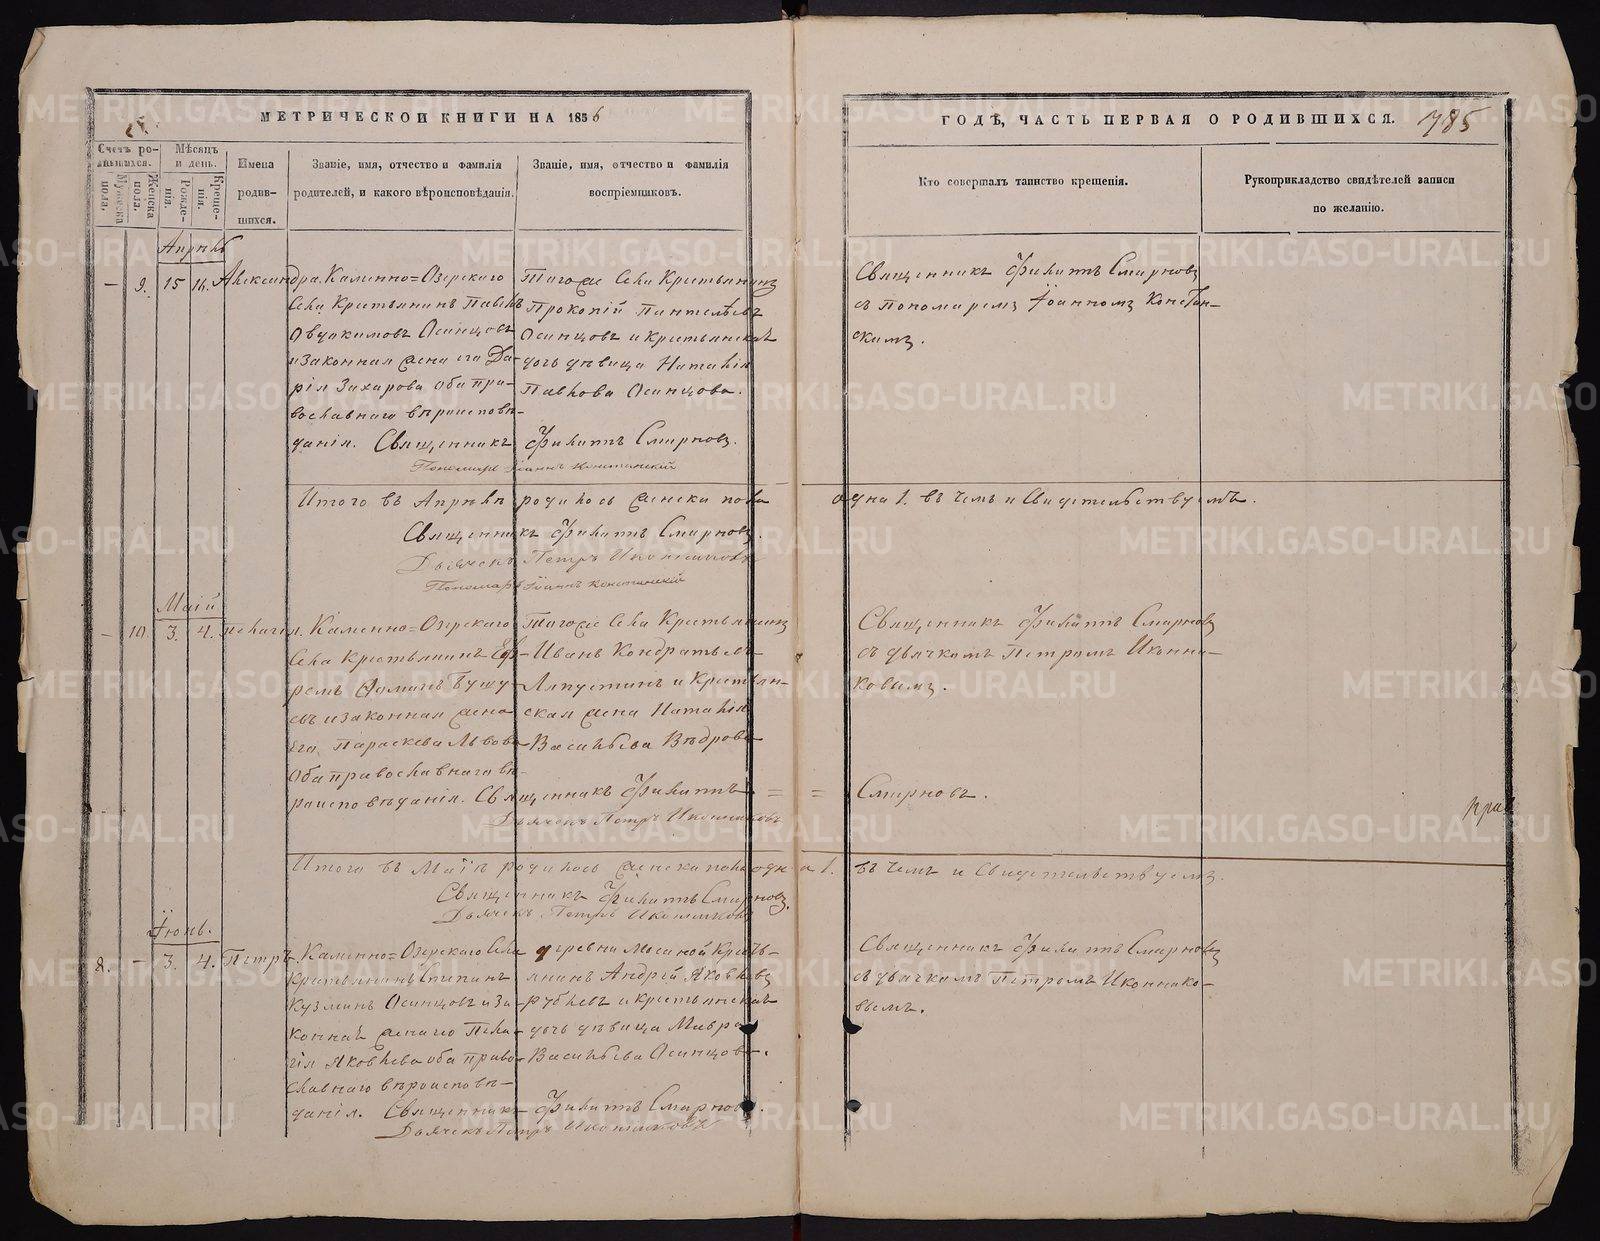 МЕТРИЧЕСКОЙ КНИГИ НА 1856
ГОДѢ, ЧАСТЬ ПЕРВАЯ О РОДИВШИХСЯ.
785
Счетъ ро-
дившихся.
Мужеска пола.
Женска пола.
Мѣсяцъ
и день.
Рожде-
нія.
Креще-
нія.
Имена
родив-
шихся.
Званіе, имя, отчество и фамилія
родителей, и какого вѣроисповѣданія.
Званіе, имя, отчество и фамилія
воспріемниковъ.
Кто совершалъ таинство крещенія.
Рукоприкладство свидѣтелей записи
по желанію.
Апрѣль
– 9. 15 16. Александра.
Каменно=Озерскаго
Села Крестьянинъ Павелъ
Овдокимовъ Осинцовъ
и законная жена его Да-
рія Захарова оба пра-
вославнаго вѣроисповѣ-
данія. Священникъ Филиппъ Смирновъ.
Пономарь Іоаннъ Констанскій
Тогоже Села Крестьянинъ
Прокопій Пантелѣевъ
Осинцовъ и крестьянская
дочь дѣвица Наталія
Павлова Осинцова.
Священникъ Филиппъ Смирновъ
съ пономаремъ Іоанномъ Констан-
скимъ.
Итого въ Апрѣлѣ родилось женска пола одна 1. въ чемъ и Свидетельствуемъ.
Священникъ Филиппъ Смирновъ.
Дьячекъ Петръ Иконниковъ
Пономарь Іоаннъ Констанскій
Маій
– 10. 3. 4. Пелагія.
Каменно=Озерскаго
Села Крестьянинъ Еф-
ремъ
и законная жена
Его Параскева Львова
Оба православнаго вѣ-
роисповѣданія. Священникъ Филиппъ = = Смирновъ.
Дьячекъ Петръ Иконниковъ
Тогоже Села Крестьянинъ
Иванъ Кондратьевъ
Ляпустинъ и Крестьян-
ская жена Наталія
Васильева Вѣдрова
Священникъ Филиппъ Смирновъ
съ дьячкомъ Петромъ Иконни-
ковымъ.
Итого въ Маіѣ родилось женска пола одна 1. въ чемъ и Свидетельствуемъ.
Священникъ Филиппъ Смирновъ.
Дьячекъ Петръ Иконниковъ
Іюнь.
8. – 3. 4. Петръ.
Каменно=Озерскаго Села
Крестьянинъ Степанъ
Кузминъ Осинцовъ и за-
конная жена его Пела-
гія Яковлева оба право-
славнаго вѣроисповѣ-
данія. Священникъ Филиппъ Смирновъ.
Дьячекъ Петръ Иконниковъ
деревни Мосиной Кресть-
янинъ Андрей Яковлевъ
Рублевъ и крестьянская
дочь дѣвица Мавра
Васильева Осинцова.
Священникъ Филиппъ Смирновъ
съ дьячкомъ Петромъ Иконнико-
вымъ.
METRIKI.GASO-URAL.RU